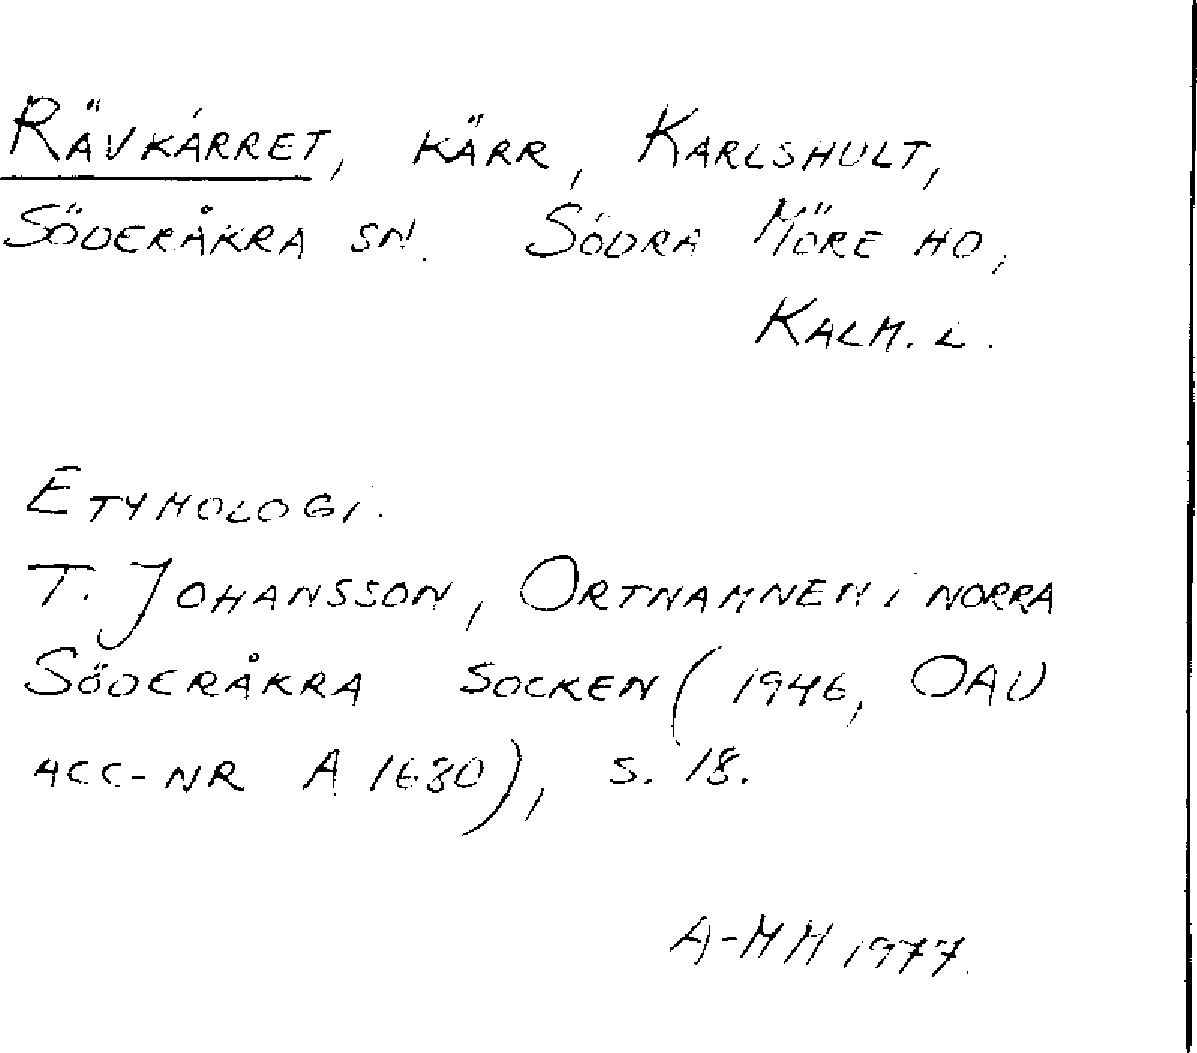 RÄVKÄRRET, KÄRR, KARLSHULT,
SÖDERÅKRA SN. SÖDRA MÖRE HD,
KALM. L.
ETYMOLOGI.
T. JOHANSSON, ORTNAMNEN i NORRA
SÖDERÅKRA SOCKEN (1946, OAU
ACC-NR A 1680), S. 18.
A-MH 1977.